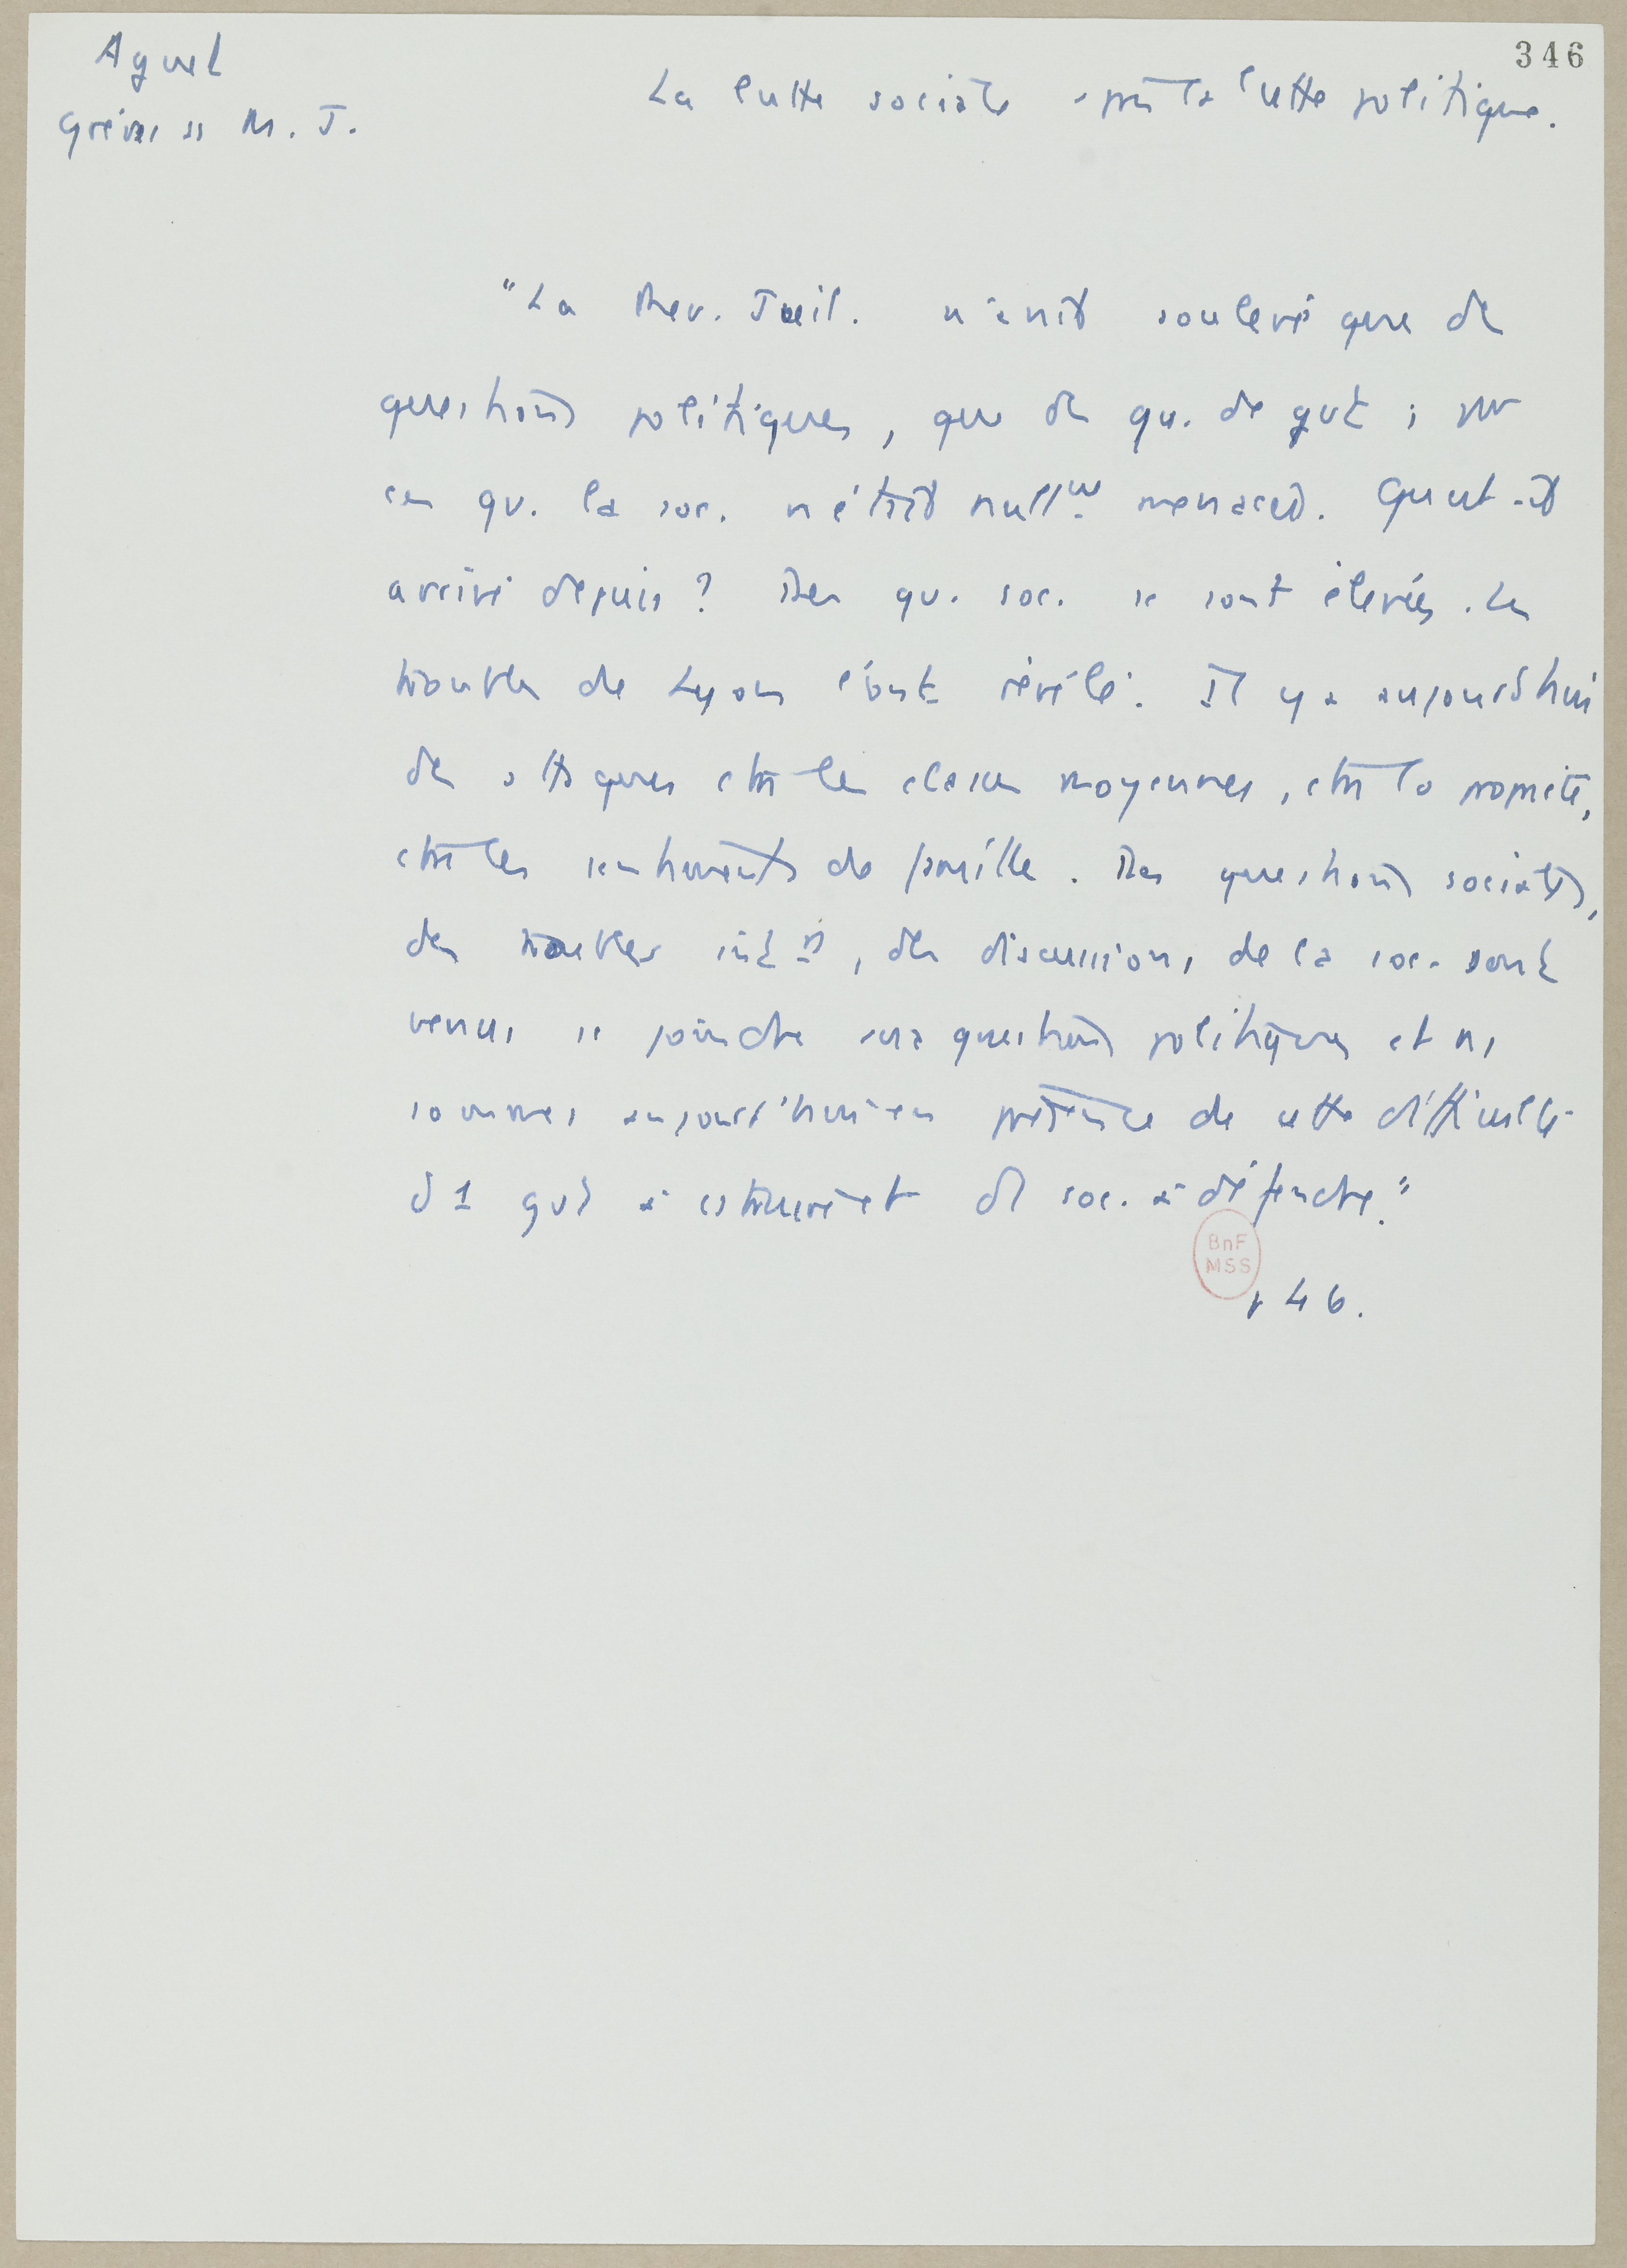 346
Aguet
Grèves ss M. J.
La lutte sociale après la lutte politique.
"La Rev. Juil. n'avait soulevé que des
questions politiques, que des qu. de gvt ; par
ces qu. la soc. n'était null^nt menacée. Qu'est-il
arrivé depuis ? Des qu. soc. se sont élevées. Les
troubles de Lyon l'ont révélé. Il y a aujourd'hui
des attaques ctre les classes moyennes, ctre la propriété,
ctre les sentiments de famille. Des questions sociales,
des troubles int^rs, des discussions de la soc. sont
venus se joindre aux questions politiques et ns
sommes aujourd'hui en présence de cette difficulté
d'1 gvt à construire et d'1 soc. à défendre."
BnF
MSS
p 46.